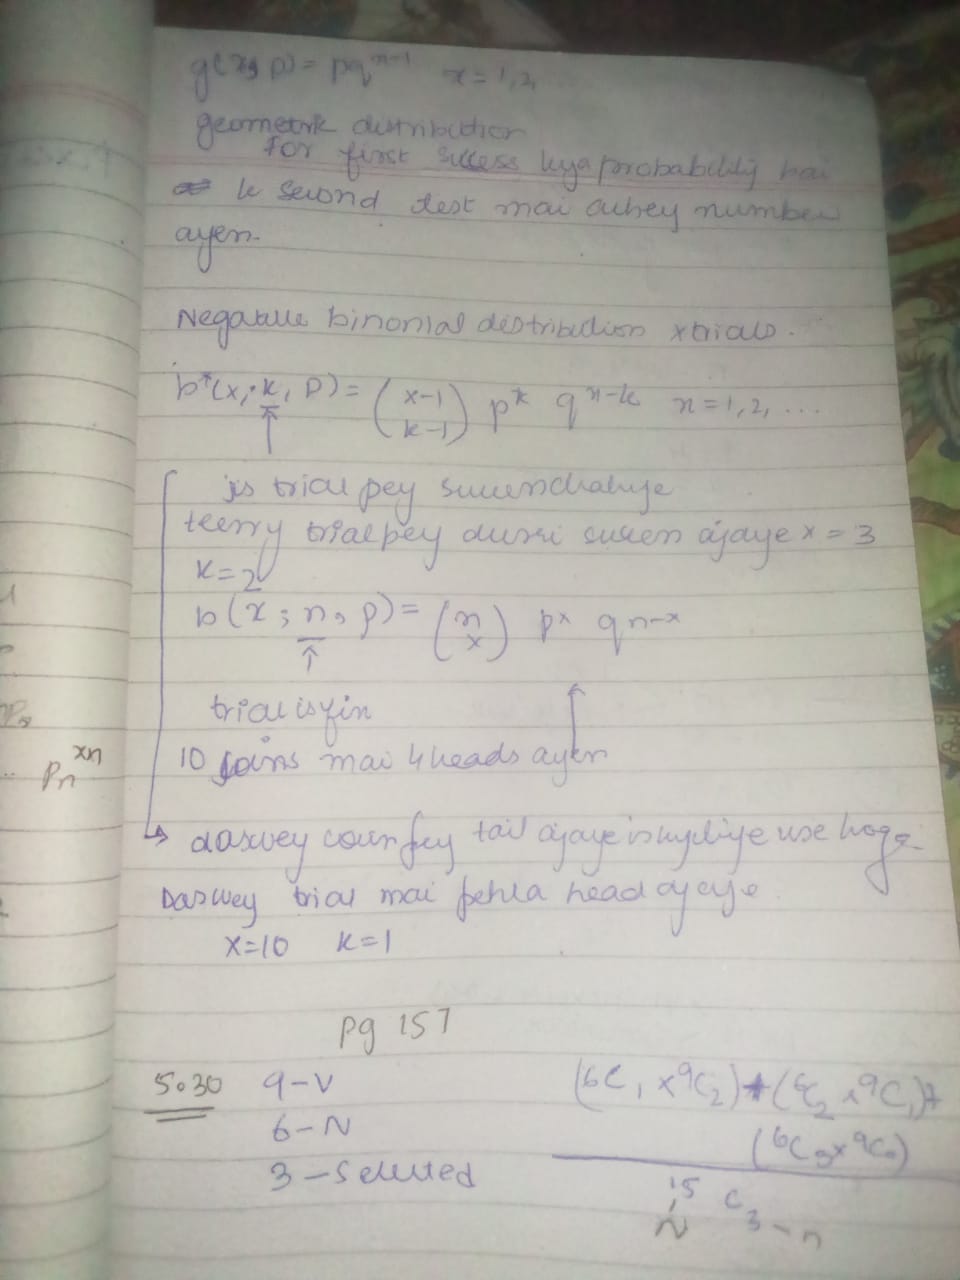 g(x; p) = pq^x-1   x = 1, 2, ...
geometric distribution
for first success kya probability hai
k second test mai achey number
ayen.
Negative binomial distribution x trials.
b*(x; k, p) = (x-1 k-1) p^k q^x-k   x = 1, 2, ...
jis trial pey success chahiye
teesry trial pey dusri success ajaye x = 3
K = 2
b(x; n, p) = (n x) p^x q^n-x
trial is fix
10 coins mai 4 heads ayen
P_n^xn
daswey coin pey tail ajaye iskyliye use hoga
Daswey trial mai pehla head ajaye
x=10   k=1
pg 157
5.30   9-V   (6C1 x 9C2) + (6C2 x 9C1) +
6-N   (6C3 x 9C0)
3-Selected   15C3 - n
N